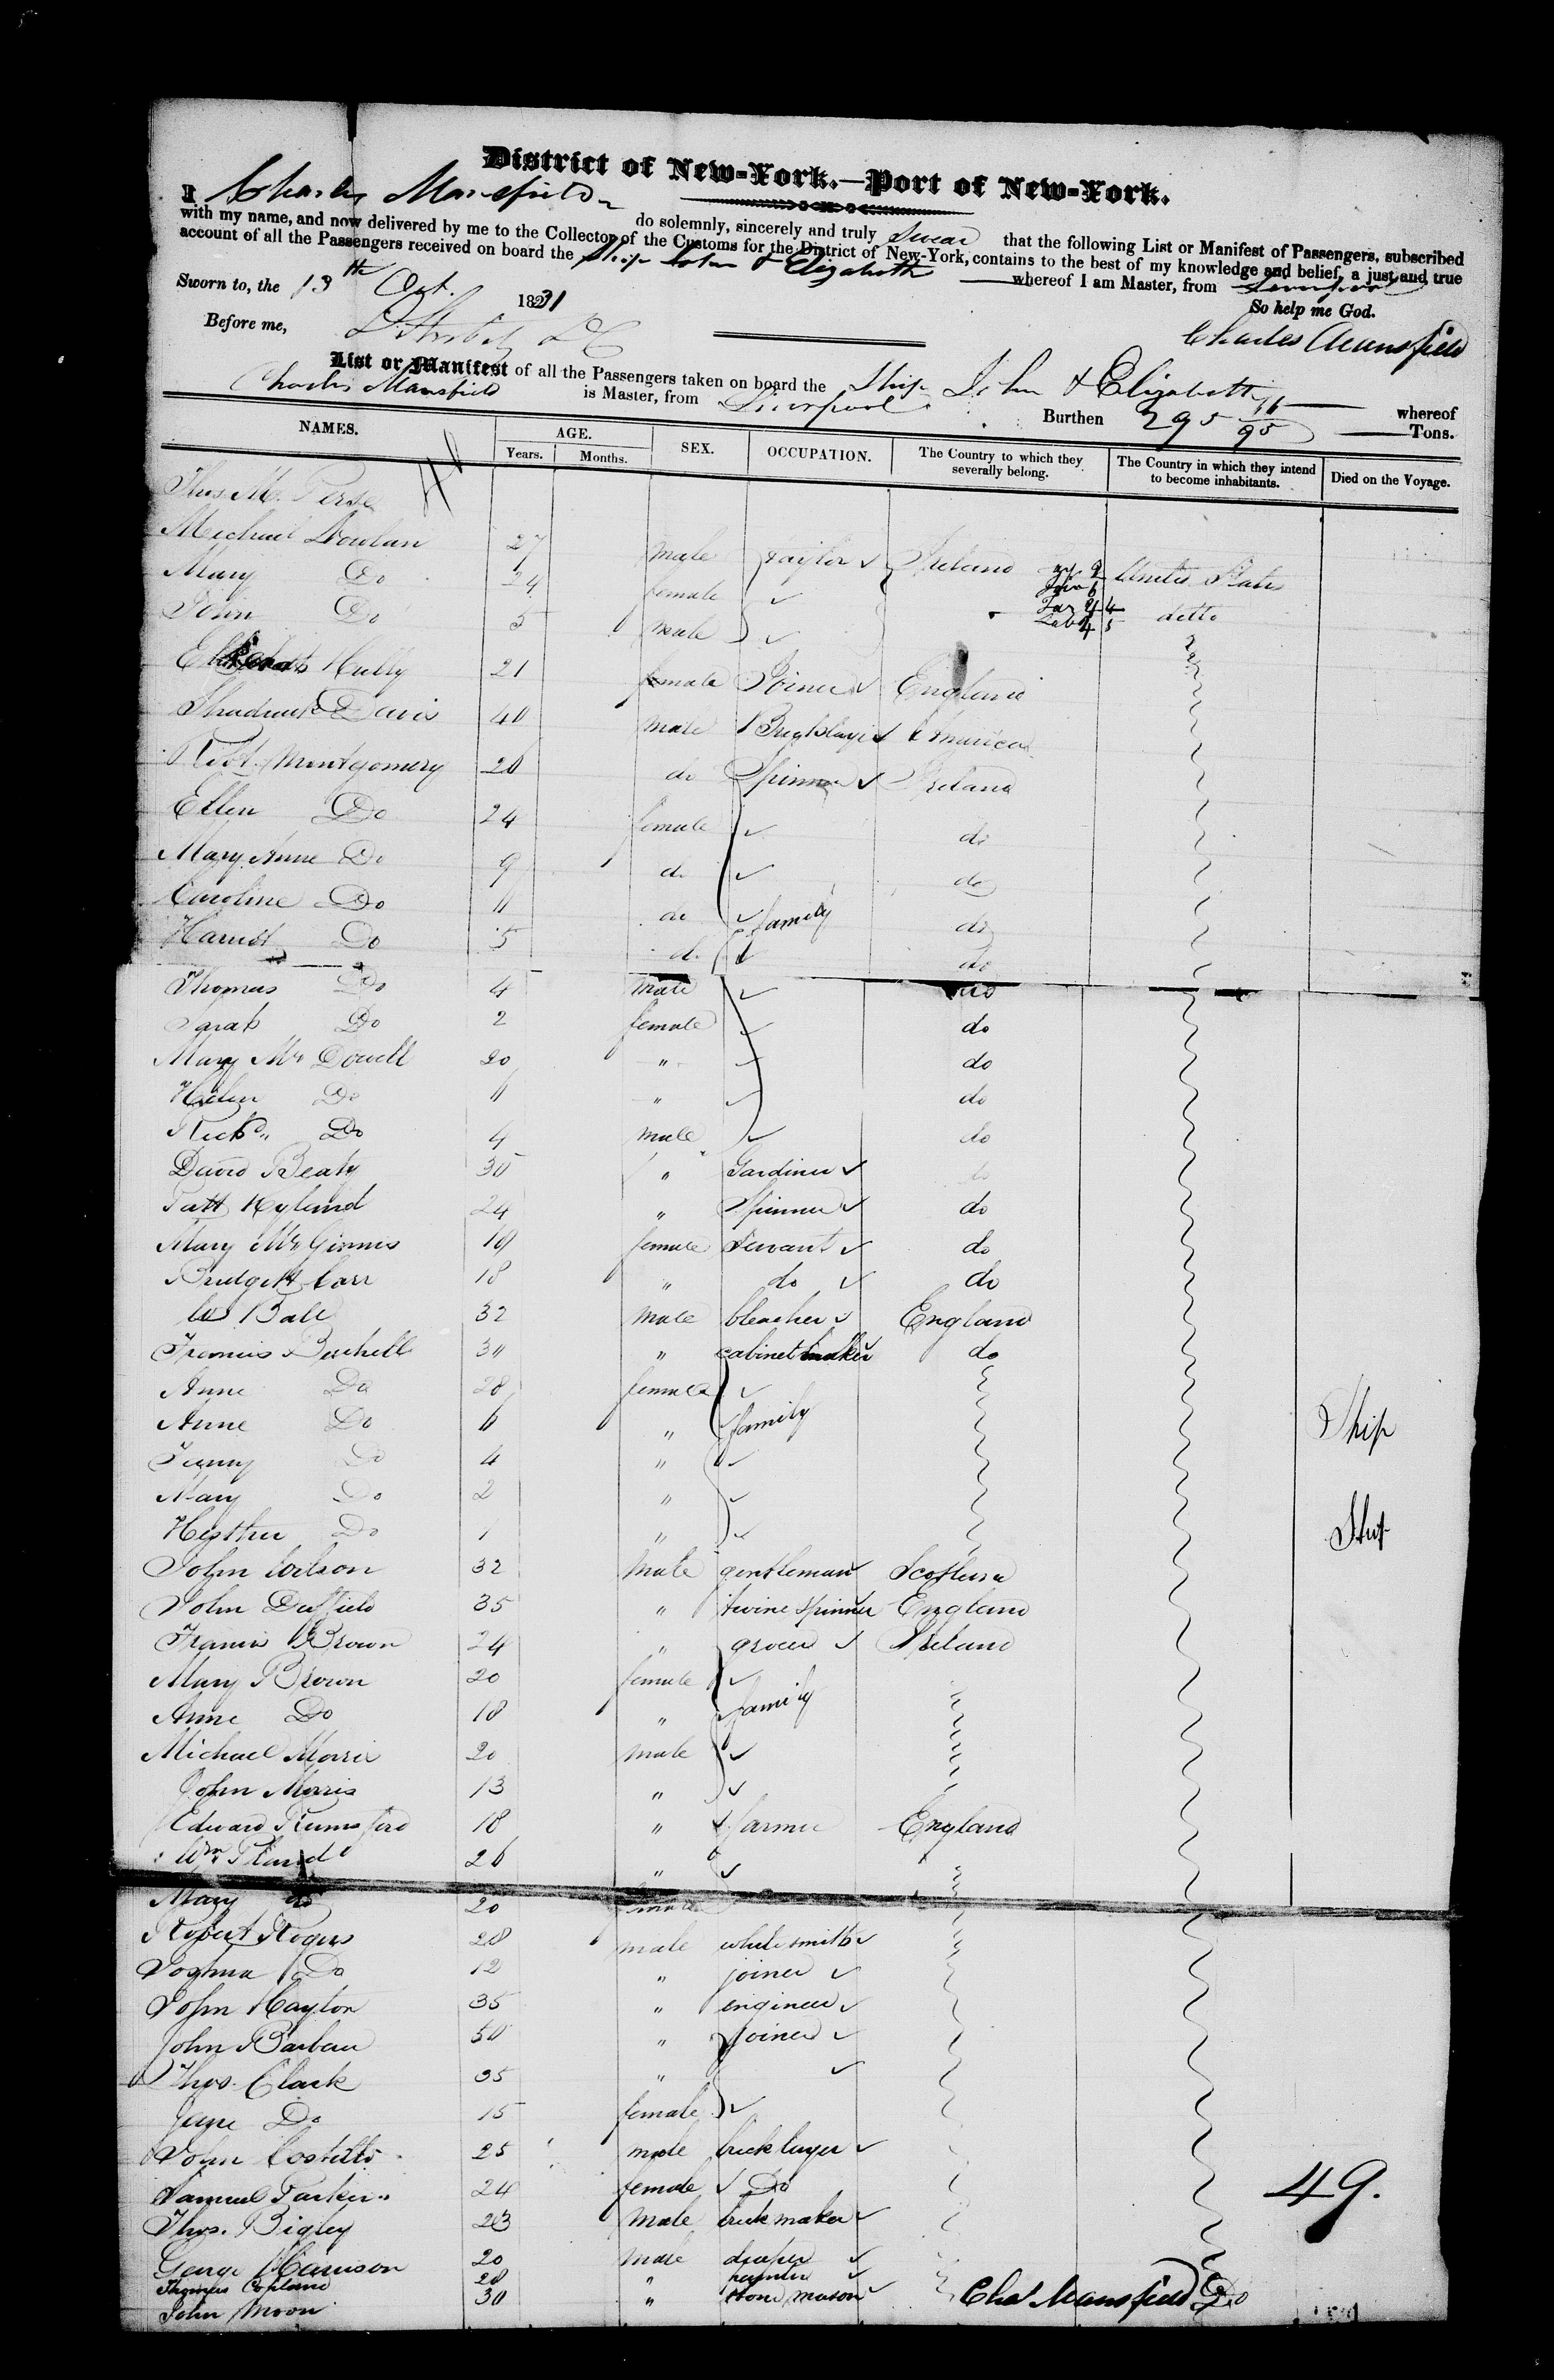 District of New-York.—Port of New-York.
I Charles Mansfield do solemnly, sincerely and truly Swear that the following List or Manifest of Passengers, subscribed
with my name, and now delivered by me to the Collector of the Customs for the District of New-York, contains to the best of my knowledge and belief, a just and true
account of all the Passengers received on board the Ship John & Elizabeth whereof I am Master, from Liverpool
Sworn to, the 13th Oct. 1831 So help me God.
Before me, Charles Mansfield
List or Manifest of all the Passengers taken on board the Ship John & Elizabeth whereof
Charles Mansfield is Master, from Liverpool Burthen 295 16/95 Tons.
NAMES. AGE. SEX. OCCUPATION. The Country to which they severally belong. The Country in which they intend to become inhabitants. Died on the Voyage.
Years. Months.
Thos M.
Michael Dowlan 27 male taylor Ireland United States
Mary Do 24 female ditto
John Do 5 male
Kelly 21 male Joiner England
Shadrack Davis 40 male Bricklayer America
Robt. Montgomery 26 do Spinner Ireland
Ellen Do 24 female do
Mary Anne Do 9 do do
Caroline Do do family do
Harriet Do 5 do do
Thomas Do 4 male do
Sarah Do 2 female do
Mary Mc Dowell 20 " do
Helen Do " do
Richd. Do 4 male do
David Beaty 30 " Gardiner do
Patt Hyland 24 " Spinner do
Mary McGinnis 19 female servant do
Bridgett Carr 18 " do do
Ball 32 male bleacher England
Francis Burhell " cabinet maker do
Anne Do 28 female
Anne Do 6 " family
Fanny Do 4 "
Mary Do 2 "
Hesther Do 1 "
John Wilson 32 male gentleman Scotland
John Duffield 35 " twine spinner England
Francis Brown 24 " grocer Ireland
Mary Brown 20 female
Anne Do 18 " family
Michael Morris 20 male
John Morris 13 "
Edward Rumsford 18 " farmer England
Wm 26 "
Mary do 20 female
Robert Rogers 28 male white smith
Joshua Do 12 " joiner
John Hayton 35 " engineer
John Barbeau 50 " joiner
Thos. Clark 35 "
Jane Do 15 female
John Costello 25 male brick layer
Samuel Parker 24 female Do
Thos. Bigley 23 male brick maker
George Harrison 20 male draper
Thomas Copland 28 " painter
John Moon 30 " stone mason
Ship
49.
Chas Mansfield